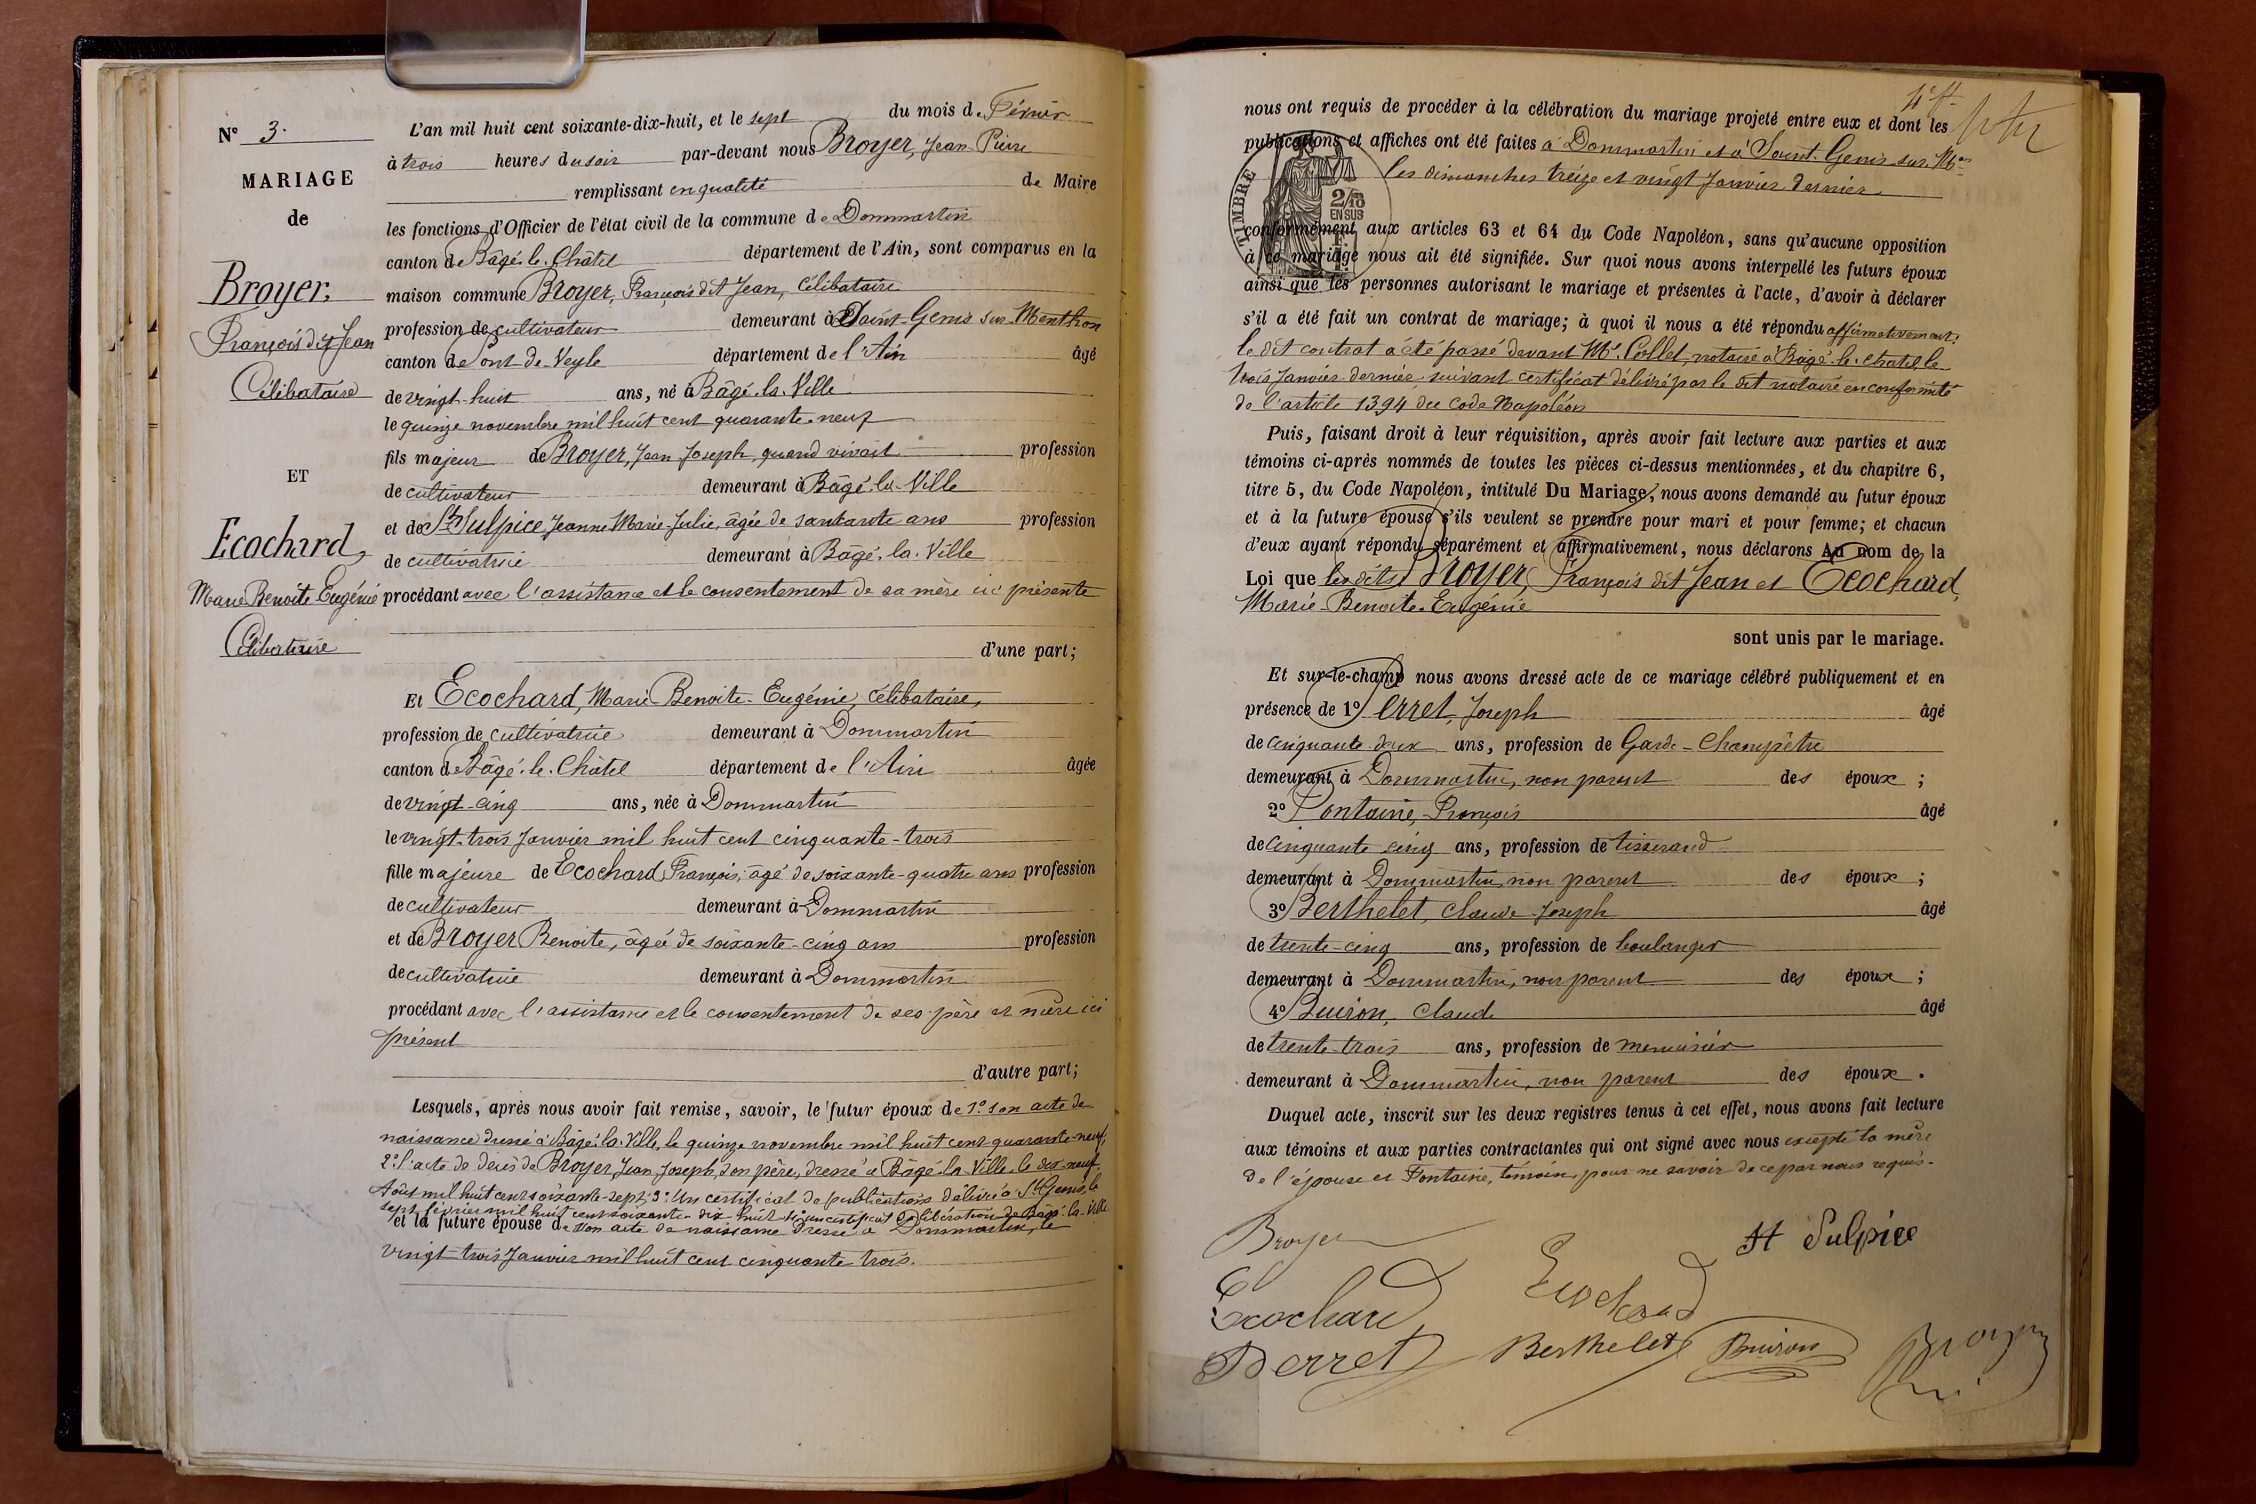 N° 3.
MARIAGE
de
Broyer,
François dit Jean
Célibataire
ET
Ecochard,
Marie Benoîte Eugénie
Célibataire
L'an mil huit cent soixante-dix-huit, et le sept du mois de Février
à trois heures du soir par-devant nous Broyer, Jean-Pierre
remplissant en qualité de Maire
les fonctions d'Officier de l'état civil de la commune de Dommartin
canton de Bâgé-le-Châtel département de l'Ain, sont comparus en la
maison commune Broyer, François dit Jean, célibataire
profession de cultivateur demeurant à Saint-Genis sur Menthon
canton de Pont de Veyle département de l'Ain âgé
de vingt-huit ans, né à Bâgé-la-Ville
le quinze novembre mil huit cent quarante-neuf
fils majeur de Broyer, Jean Joseph, quand vivait profession
de cultivateur demeurant à Bâgé-la-Ville
et de St Sulpice, Jeanne Marie-Julie, âgée de ans profession
de cultivatrice demeurant à Bâgé-la-Ville
procédant avec l'assistance et le consentement de sa mère ici présente
d'une part;
Et Ecochard, Marie-Benoite-Eugénie, célibataire,
profession de cultivatrice demeurant à Dommartin
canton de Bâgé-le-Châtel département de l'Ain âgée
de vingt-cinq ans, née à Dommartin
le vingt-trois Janvier mil huit cent cinquante-trois
fille majeure de Ecochard, François, âgé de soixante-quatre ans profession
de cultivateur demeurant à Dommartin
et de Broyer Benoite, âgée de soixante-cinq ans profession
de cultivatrice demeurant à Dommartin
procédant avec l'assistance et le consentement de ses père et mère ici
présent
d'autre part;
Lesquels, après nous avoir fait remise, savoir, le futur époux de 1° son acte de
naissance dressé à Bâgé-la-Ville, le quinze novembre mil huit cent quarante-neuf;
2° l'acte de décès de Broyer, Jean-Joseph, son père, dressé à Bâgé-la-Ville le dix-neuf
Août mil huit cent soixante-sept; 3° Un certificat de publications délivré à St Genis, le
sept février mil huit cent soixante-dix-huit 4° un certificat libération de Bâgé-la-Ville
et la future épouse de son acte de naissance dressé à Dommartin, le
vingt-trois Janvier mil huit cent cinquante trois.
nous ont requis de procéder à la célébration du mariage projeté entre eux et dont les
publications et affiches ont été faites à Dommartin et à Saint-Genis sur Mon
les dimanches treize et vingt Janvier dernier
TIMBRE
2/10
EN SUS
conformément aux articles 63 et 64 du Code Napoléon, sans qu'aucune opposition
à ce mariage nous ait été signifiée. Sur quoi nous avons interpellé les futurs époux
ainsi que les personnes autorisant le mariage et présentes à l'acte, d'avoir à déclarer
s'il a été fait un contrat de mariage; à quoi il nous a été répondu affirmativement;
le dit contrat a été passé devant Me Collet, notaire à Bâgé-le-chatel, le
trois Janvier dernier, suivant certificat délivré par le dit notaire en conformité
de l'article 1394 du Code Napoléon
Puis, faisant droit à leur réquisition, après avoir fait lecture aux parties et aux
témoins ci-après nommés de toutes les pièces ci-dessus mentionnées, et du chapitre 6,
titre 5, du Code Napoléon, intitulé Du Mariage, nous avons demandé au futur époux
et à la future épouse s'ils veulent se prendre pour mari et pour femme; et chacun
d'eux ayant répondu séparément et affirmativement, nous déclarons Au nom de la
Loi que les dits Broyer, François dit Jean et Ecochard,
Marie-Benoite-Eugénie
sont unis par le mariage.
Et sur-le-champ nous avons dressé acte de ce mariage célébré publiquement et en
présence de 1° Perret, Joseph âgé
de cinquante-deux ans, profession de Garde-Champêtre
demeurant à Dommartin, non parent des époux ;
2° Fontaine, François âgé
de cinquante cinq ans, profession de tisserand
demeurant à Dommartin, non parent des époux ;
3° Berthelet, Claude Joseph âgé
de trente-cinq ans, profession de boulanger
demeurant à Dommartin, non parent des époux ;
4° Buiron, Claude âgé
de trente-trois ans, profession de menuisier
demeurant à Dommartin, non parent des époux.
Duquel acte, inscrit sur les deux registres tenus à cet effet, nous avons fait lecture
aux témoins et aux parties contractantes qui ont signé avec nous excepté la mère
de l'épouse et Fontaine, témoin, pour ne savoir de ce par nous requis.
Broyer
St Sulpice
Ecochard
Ecochard
Perret
Berthelet
Buiron
Broyer